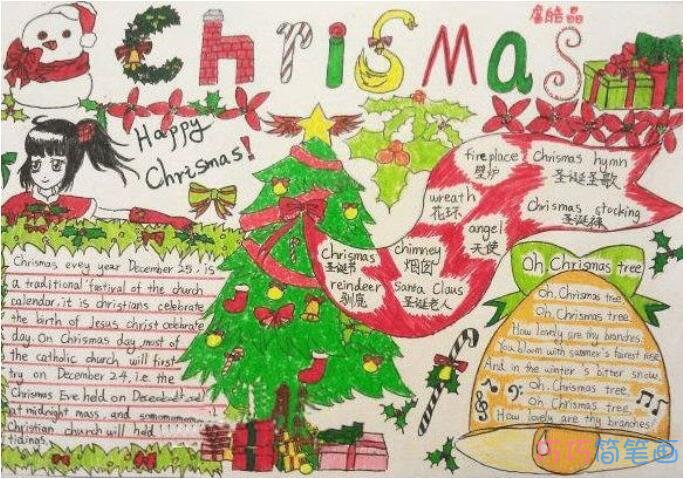 Chrismas
Happy
Chrismas!
fireplace
壁炉
Chrismas hymn
圣诞圣歌
wreath
花环
angel
天使
Chrismas stocking
圣诞袜
Chrismas
圣诞节
chimney
烟囱
reindeer
驯鹿
Santa Claus
圣诞老人
Chrismas evey year December 25. is
a traditional festival of the church
calendar. it is christians celebrate
the birth of Jesus christ celebrate
day. On Chrismas day, most of
the catholic church will first
try on December 24, i.e. the
Chrismas Eve held on
at midnight mass and
Christian church will held
tidings.
Oh, Chrismas tree
Oh, Chrismas tree,
Oh, Chrismas tree
How lovely are thy branches.
You bloom with summer's fairest rose
And in the winter's bitter snow,
Oh, Chrismas tree,
Oh Chrismas tree,
How lovely are thy branches!
简笔画